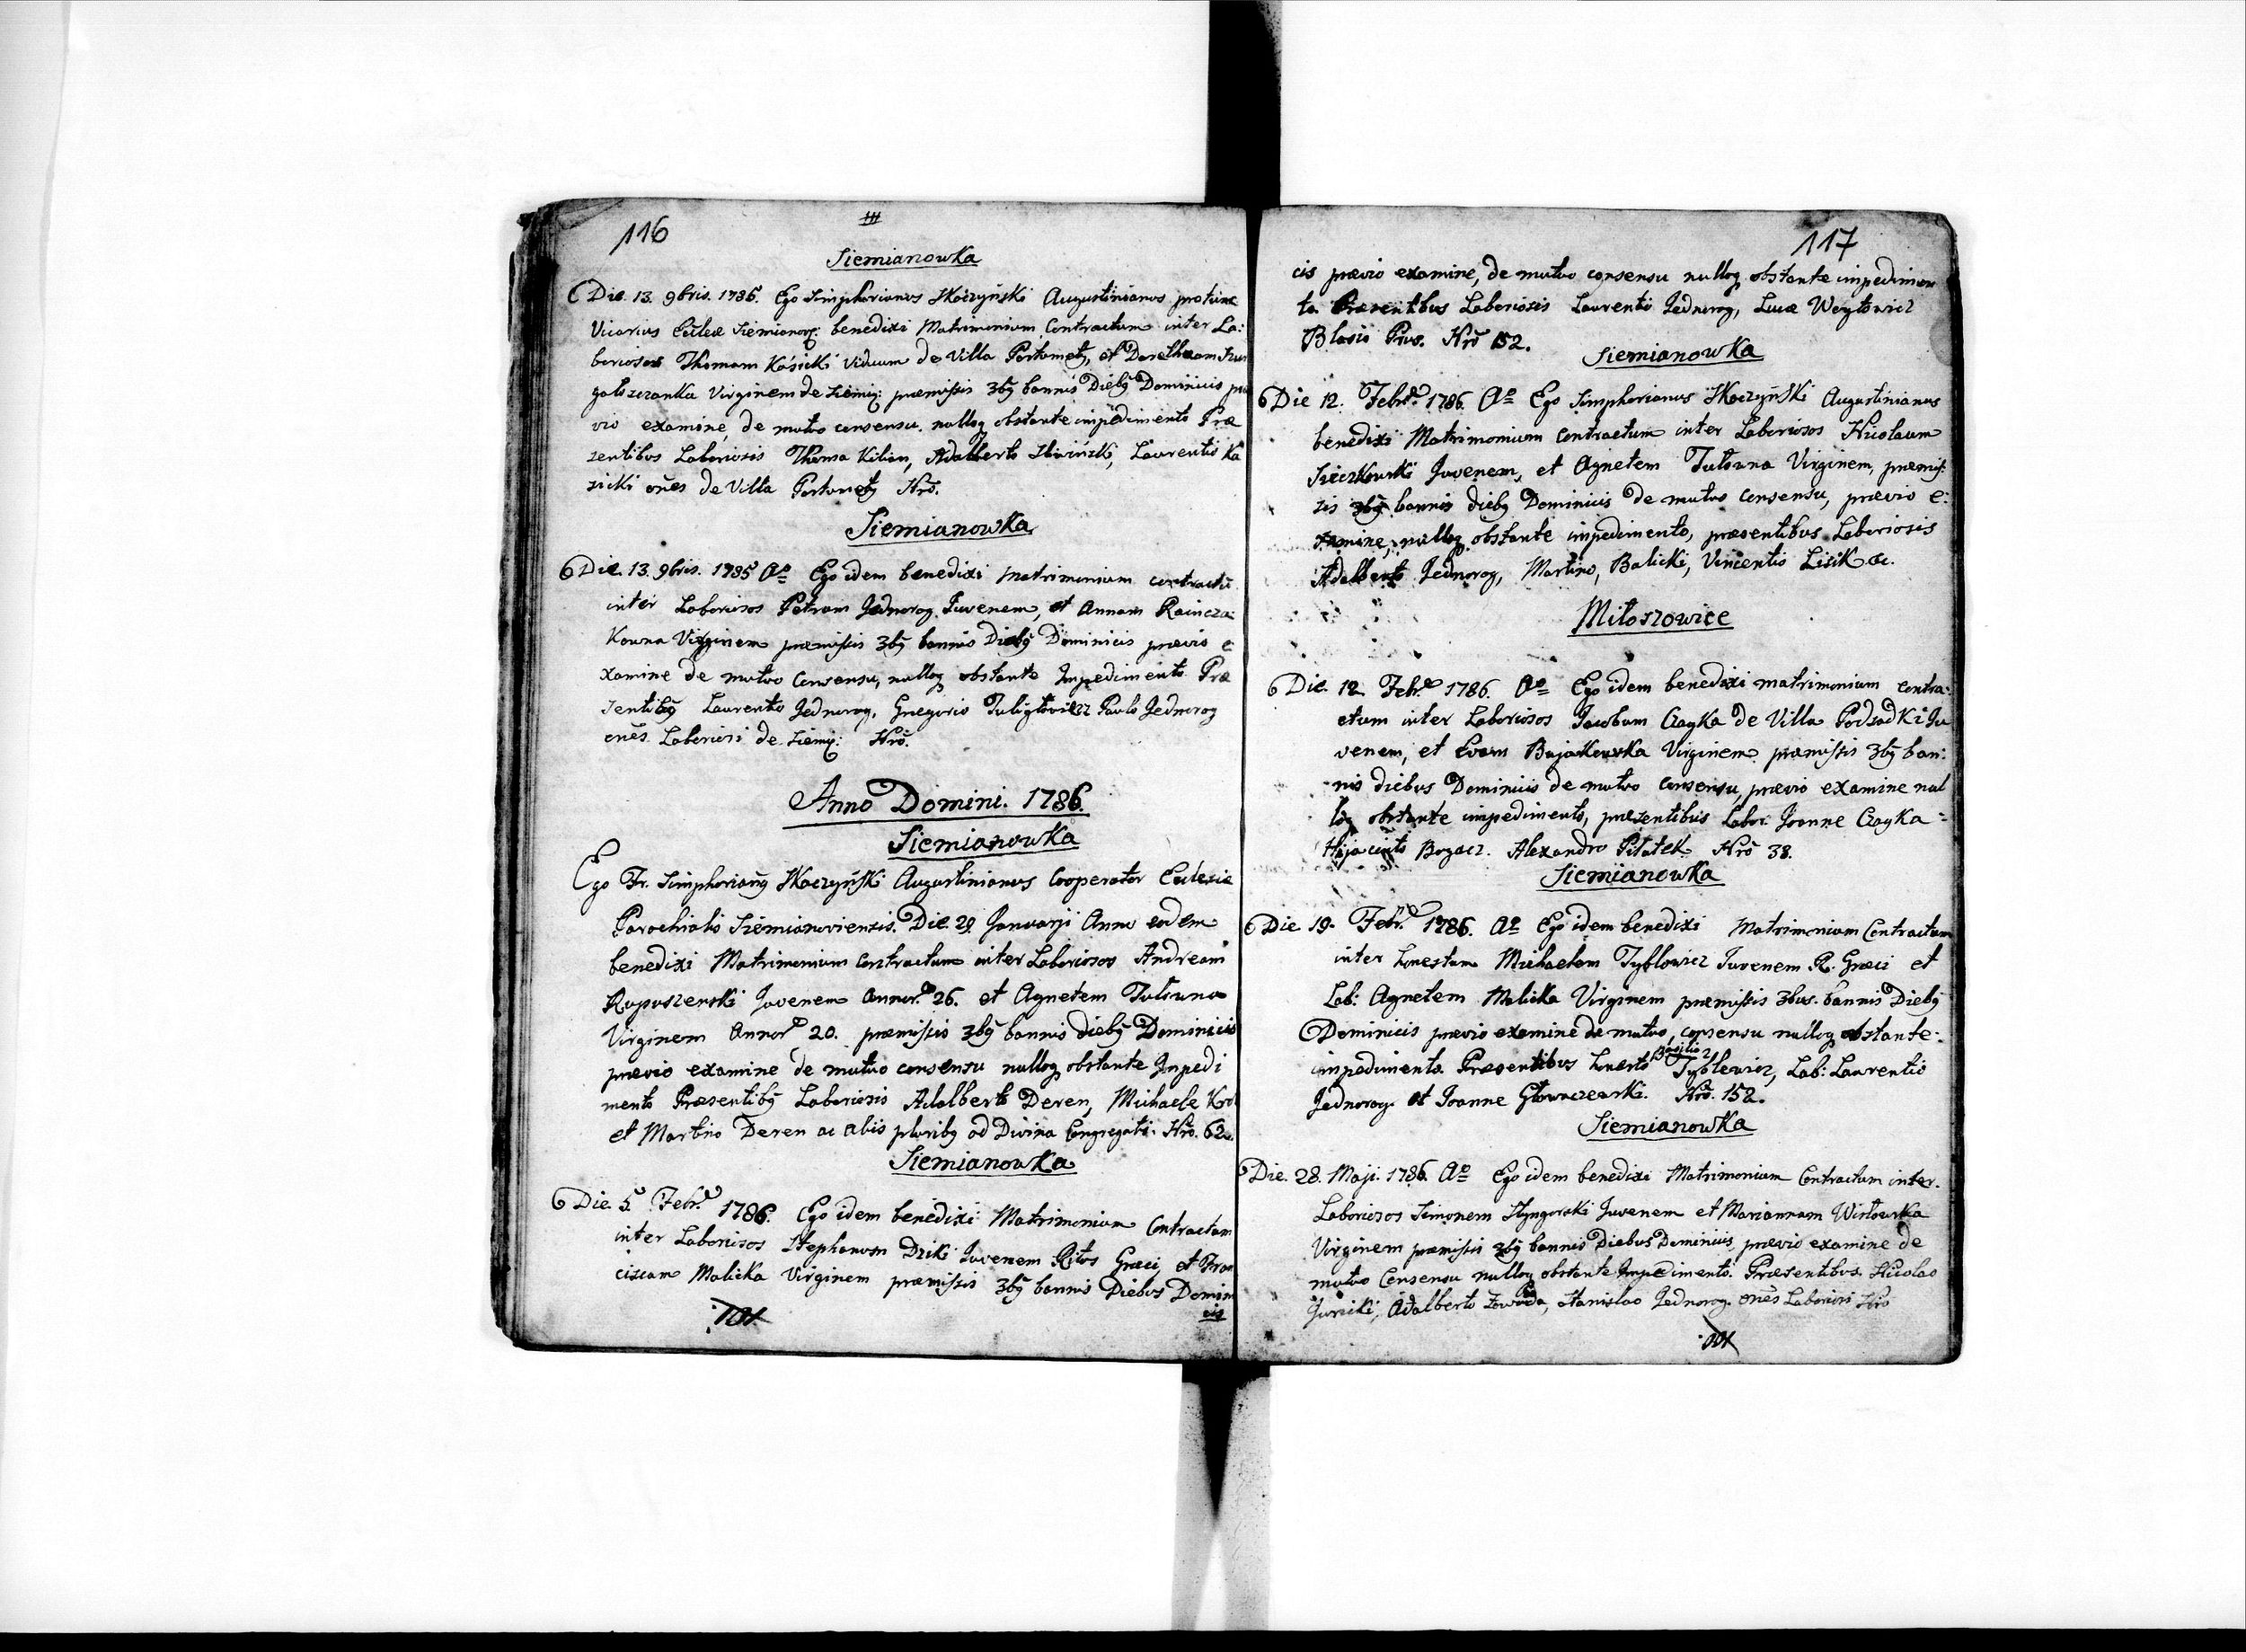 116
Siemianowka
Die. 13. 9bris. 1785. Ego Simphorianus Skoczyński Augustinianus protunc
Vicarius Eccleæ Siemianov: benedixi Matrimonium Contractum inter La:
boriosos Thomam Kásicki Viduum de Villa et Dorotheam
Virginem de Siemi: præmissis 3bq bannis Diebq Dominicis præ
vio examine, de mutuo consensu. nulloq obstante impedimento Præ
sentibus Laboriosis Thoma Kilian, Adalberto Laurentio Ka
sicki oñes de Villa Nrõ.
Siemianowka
Die. 13. 9bris. 1785 Aº Ego idem benedixi Matrimonium contractũ
inter Laboriosos Petrum Jednorog Juvenem, et Annam Raincza:
kowna Virginem præmissis 3bq bannis Diebq Dominicis prævio e
xamine de mutuo Consensu, nulloq obstante Impedimento Præ
sentibq Laurento Jednorog, Gregorio Paulo Jednorog
oñes Laboriosi de Siemi: Nrõ.
Anno Domini. 1786.
Siemianowka
Ego Fr. Simphorianq Skoczyński Augustinianus Cooperator Eclesiæ
Parochialis Siemianoviensis. Die. 29 Januarji Anno eodem
benedixi Matrimonium Contractum inter Laboriosos Andream
Ropuszenski Juvenem Annor. 26. et Agnetem Tutowna
Virginem Annor 20. præmissis 3bq bannis diebq Dominicis
prævio examine de mutuo consensu nulloq obstante Impedi
mento Præsentibq Laboriosis Adalberto Deren, Michaele Krol
et Martino Deren ac aliis pluribq ad Divina Congregatis. Nrõ. 62.
Siemianowka
Die. 5. Febr. 1786. Ego idem benedixi Matrimonium Contractum
inter Laboriosos Stephanum Dziki Juvenem Ritus Græci, et Fran
ciscam Malicka Virginem præmissis 3bq bannis Diebus Domini
cis
117
cis prævio examine, de mutuo consensu nulloq obstante impedimen
to. Præsentibus Laboriosis Laurentio Jednorog, Luca Woytowicz
Blasio Prus. Nrõ 152.
Siemianowka
Die 12. Febr. 1786. Aº Ego Simphorianus Skoczyński Augustinianus
benedixi Matrimonium Contractum inter Laboriosos Nicolaum
Sieczkowski Juvenem, et Agnetem Tutowna Virginem, præmis:
sis 3bq bannis diebq Dominicis de mutuo consensu, prævio e:
xamine, nulloq obstante impedimento, præsentibus Laboriosis
Adalberto Jednorog, Martino, Balicki, Vincentio Lisik &c.
Miłoszowice
Die. 12. Febr. 1786. Aº Ego idem benedixi matrimonium contra:
ctum inter Laboriosos Jacobum Czayka de Villa Podsadki Ju
venem, et Evam Bajakowka Virginem præmissis 3bq ban:
nis diebus Dominicis de mutuo consensu, prævio examine nul
loq obstante impedimento, præsentibus Labor: Joanne Czayka
Hijacinto Bogacz. Alexandro Piłatek Nrõ 38.
Siemianowka
Die 19. Febr. 1786. Aº Ego idem benedixi Matrimonium Contractum
inter honestum Michaelem Tyblowicz Juvenem R. Græci et
Lab: Agnetem Malicka Virginem præmissis 3bus. bannis Diebq
Dominicis prævio examine de mutuo, consensu nulloq obstante
impedimento. Præsentibus honesto Basilio Tyblewicz, Lab: Laurentio
Jednorog. et Joanne Głowaczewski. Nrõ. 152.
Siemianowka
Die. 28. Maji. 1786. Aº Ego idem benedixi Matrimonium Contractum inter.
Laboriosos Simonem Juvenem et Mariannam Wisłowka
Virginem præmissis 3bq bannis Diebus Dominicis, prævio examine de
mutuo Consensu nulloq obstante Impedimento. Præsentibus. Nicolao
Jurcicki, Adalberto Zawada, Stanislao Jednorog. oñes Laboriosi Nro